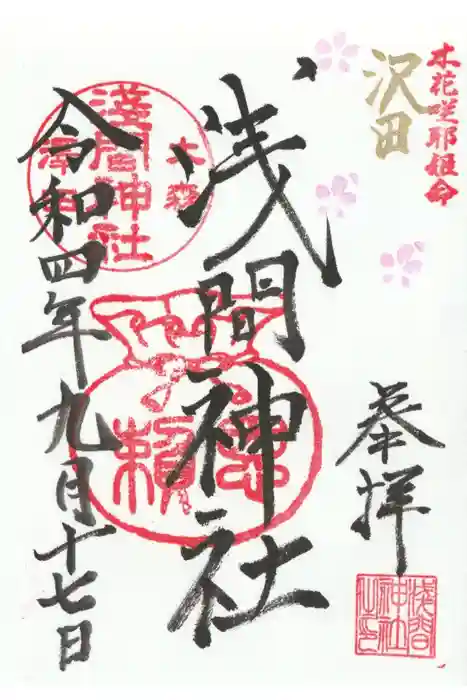 木花咲耶姫命
沢田
奉拝
浅間神社
令和四年九月十七日
淺間神社
大森
澤田
浅間
神社
之印